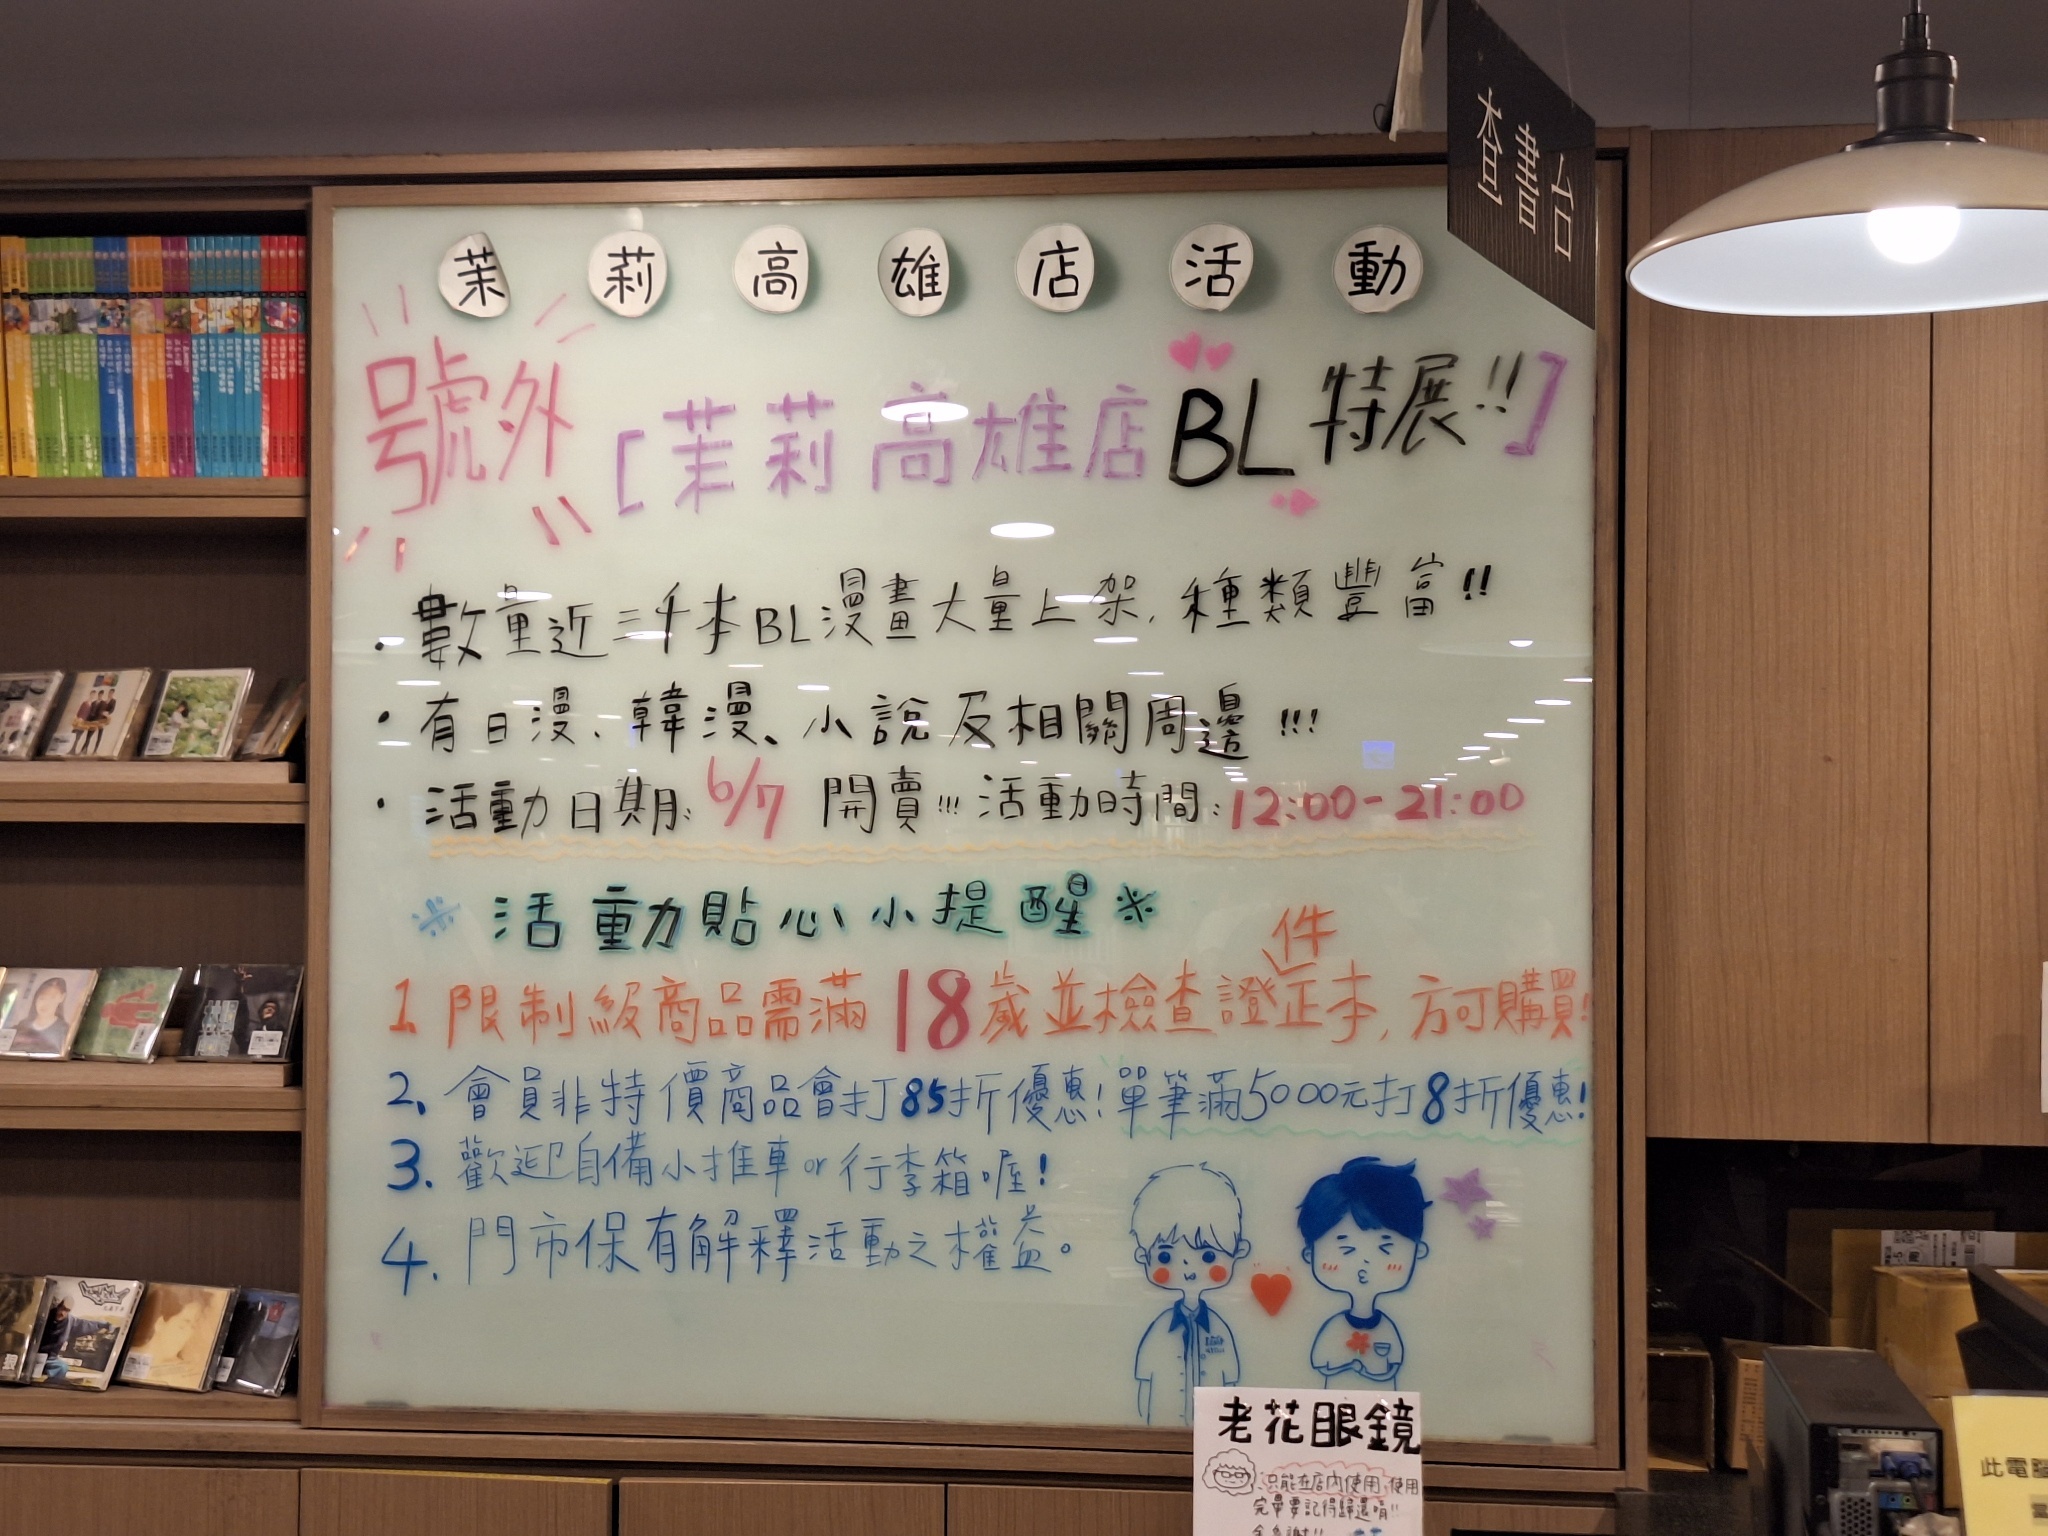 查書台
茉莉高雄店活動
號外
[茉莉高雄店BL特展!!]
・數量近三千本BL漫畫大量上架,種類豐富!!
・有日漫、韓漫、小說及相關周邊!!!
・活動日期:6/7 開賣!!!活動時間:12:00-21:00
※活動貼心小提醒※
1.限制級商品需滿18歲並檢查證件正本,方可購買!
2、會員非特價商品會打85折優惠!單筆滿5000元打8折優惠!
3.歡迎自備小推車or行李箱喔!
4.門市保有解釋活動之權益。
老花眼鏡
只能在店內使用,使用
完畢要記得歸還唷!!
此電腦